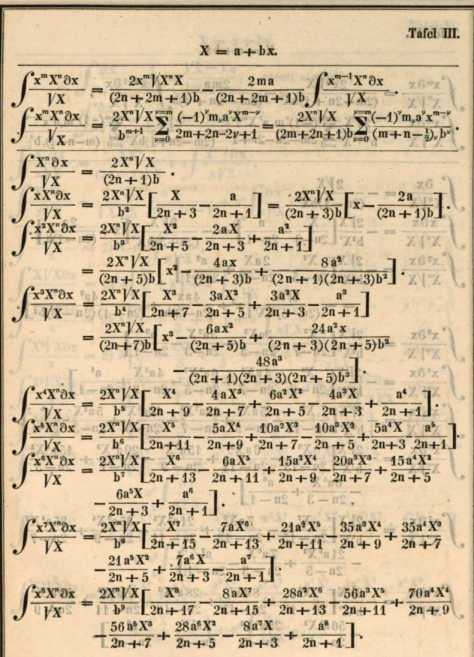 Tafel III.
X = a + bx.
∫ x^m X^n ∂x / √X = 2x^m √X X^n X / (2n + 2m + 1)b − 2ma / (2n + 2m + 1)b ∫ x^{m−1} X^n ∂x / √X
∫ x^m X^n ∂x / √X = 2X^n √X / b^{m+1} Σ (−1)^ν m_ν a^ν X^{m−ν} / 2m + 2n − 2ν + 1 = 2X^n √X / (2m + 2n + 1)b Σ (−1)^ν m_ν a^ν x^{m−ν} / (m + n − ½)_ν b^ν .
∫ X^n ∂x / √X = 2X^n √X / (2n + 1)b .
∫ xX^n ∂x / √X = 2X^n √X / b² [ X / 2n + 3 − a / 2n + 1 ] = 2X^n √X / (2n + 3)b [ x − 2a / (2n + 1)b ] .
∫ x²X^n ∂x / √X = 2X^n √X / b³ [ X² / 2n + 5 − 2aX / 2n + 3 + a² / 2n + 1 ]
= 2X^n √X / (2n + 5)b [ x² − 4ax / (2n + 3)b + 8a² / (2n + 1)(2n + 3)b² ] .
∫ x³X^n ∂x / √X = 2X^n √X / b⁴ [ X³ / 2n + 7 − 3aX² / 2n + 5 + 3a²X / 2n + 3 − a³ / 2n + 1 ]
= 2X^n √X / (2n + 7)b [ x³ − 6ax² / (2n + 5)b + 24a²x / (2n + 3)(2n + 5)b²
− 48a³ / (2n + 1)(2n + 3)(2n + 5)b³ ] .
∫ x⁴X^n ∂x / √X = 2X^n √X / b⁵ [ X⁴ / 2n + 9 − 4aX³ / 2n + 7 + 6a²X² / 2n + 5 − 4a³X / 2n + 3 + a⁴ / 2n + 1 ] .
∫ x⁵X^n ∂x / √X = 2X^n √X / b⁶ [ X⁵ / 2n + 11 − 5aX⁴ / 2n + 9 + 10a²X³ / 2n + 7 − 10a³X² / 2n + 5 + 5a⁴X / 2n + 3 − a⁵ / 2n + 1 ] .
∫ x⁶X^n ∂x / √X = 2X^n √X / b⁷ [ X⁶ / 2n + 13 − 6aX⁵ / 2n + 11 + 15a²X⁴ / 2n + 9 − 20a³X³ / 2n + 7 + 15a⁴X² / 2n + 5
− 6a⁵X / 2n + 3 + a⁶ / 2n + 1 ] .
∫ x⁷X^n ∂x / √X = 2X^n √X / b⁸ [ X⁷ / 2n + 15 − 7aX⁶ / 2n + 13 + 21a²X⁵ / 2n + 11 − 35a³X⁴ / 2n + 9 + 35a⁴X³ / 2n + 7
− 21a⁵X² / 2n + 5 + 7a⁶X / 2n + 3 − a⁷ / 2n + 1 ] .
∫ x⁸X^n ∂x / √X = 2X^n √X / b⁹ [ X⁸ / 2n + 17 − 8aX⁷ / 2n + 15 + 28a²X⁶ / 2n + 13 − 56a³X⁵ / 2n + 11 + 70a⁴X⁴ / 2n + 9
− 56a⁵X³ / 2n + 7 + 28a⁶X² / 2n + 5 − 8a⁷X / 2n + 3 + a⁸ / 2n + 1 ] .